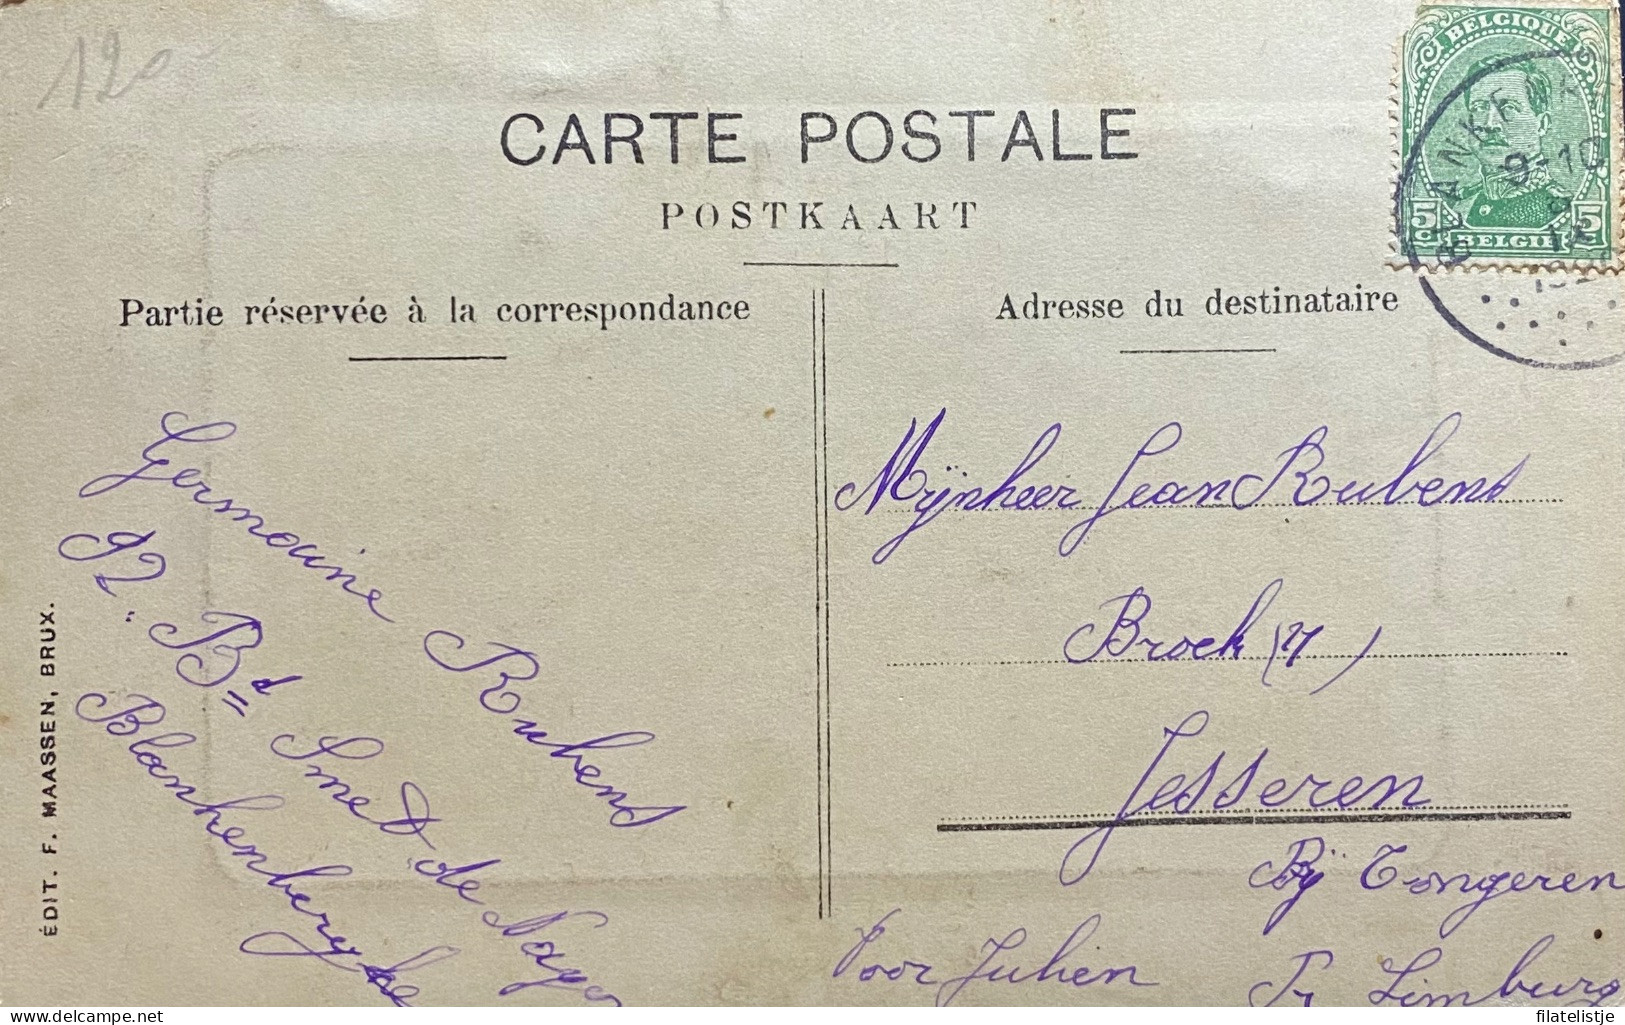 120
CARTE POSTALE
POSTKAART
BELGIQUE
5 c
5 c
BELGIË
BLANKEN
9-10
Partie réservée à la correspondance
Adresse du destinataire
Germaine Rubens
92. Bd Smet de Naye
Blankenberghe
Mijnheer Jean Rubens
Broek (4)
Jesseren
Bij Tongeren
Pr Limburg
Voor Julien
ÉDIT. F. MAASSEN, BRUX.
delcampe.net
filatelistje